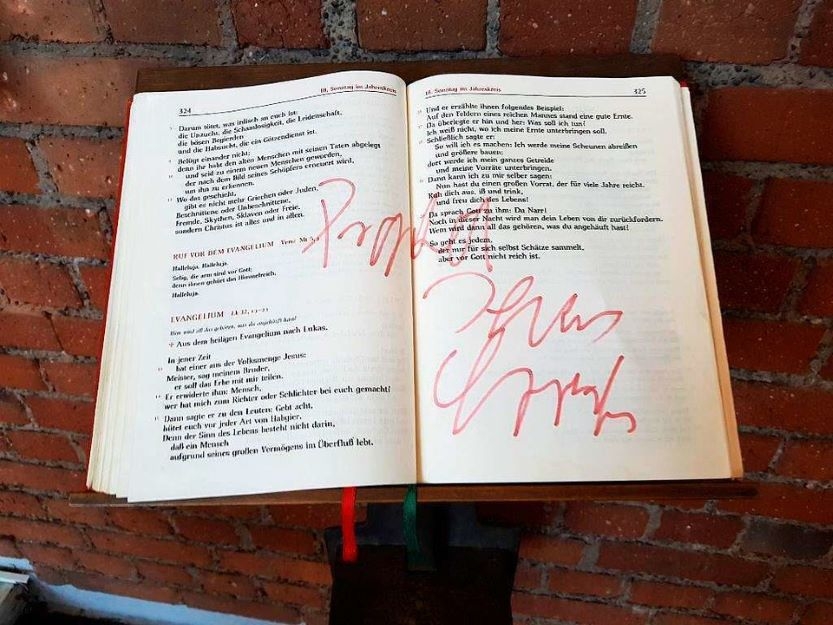 324
18. Sonntag im Jahreskreis
Darum tötet, was irdisch an euch ist:
die Unzucht, die Schamlosigkeit, die Leidenschaft,
die bösen Begierden
und die Habsucht, die ein Götzendienst ist.
Belügt einander nicht;
denn ihr habt den alten Menschen mit seinen Taten abgelegt
und seid zu einem neuen Menschen geworden,
der nach dem Bild seines Schöpfers erneuert wird,
um ihn zu erkennen.
Wo das geschieht,
gibt es nicht mehr Griechen oder Juden,
Beschnittene oder Unbeschnittene,
Fremde, Skythen, Sklaven oder Freie,
sondern Christus ist alles und in allen.
RUF VOR DEM EVANGELIUM Vers: Mt 5,3
Halleluja. Halleluja.
Selig, die arm sind vor Gott;
denn ihnen gehört das Himmelreich.
Halleluja.
EVANGELIUM Lk 12, 13–21
Wem wird all das gehören, was du angehäuft hast?
✠ Aus dem heiligen Evangelium nach Lukas.
In jener Zeit
13 bat einer aus der Volksmenge Jesus:
Meister, sag meinem Bruder,
er soll das Erbe mit mir teilen.
14 Er erwiderte ihm: Mensch,
wer hat mich zum Richter oder Schlichter bei euch gemacht?
15 Dann sagte er zu den Leuten: Gebt acht,
hütet euch vor jeder Art von Habgier.
Denn der Sinn des Lebens besteht nicht darin,
daß ein Mensch
aufgrund seines großen Vermögens im Überfluß lebt.
18. Sonntag im Jahreskreis
325
16 Und er erzählte ihnen folgendes Beispiel:
Auf den Feldern eines reichen Mannes stand eine gute Ernte.
17 Da überlegte er hin und her: Was soll ich tun?
Ich weiß nicht, wo ich meine Ernte unterbringen soll.
18 Schließlich sagte er:
So will ich es machen: Ich werde meine Scheunen abreißen
und größere bauen;
dort werde ich mein ganzes Getreide
und meine Vorräte unterbringen.
19 Dann kann ich zu mir selber sagen:
Nun hast du einen großen Vorrat, der für viele Jahre reicht.
Ruh dich aus, iß und trink,
und freu dich des Lebens!
20 Da sprach Gott zu ihm: Du Narr!
Noch in dieser Nacht wird man dein Leben von dir zurückfordern.
Wem wird dann all das gehören, was du angehäuft hast?
21 So geht es jedem,
der nur für sich selbst Schätze sammelt,
aber vor Gott nicht reich ist.